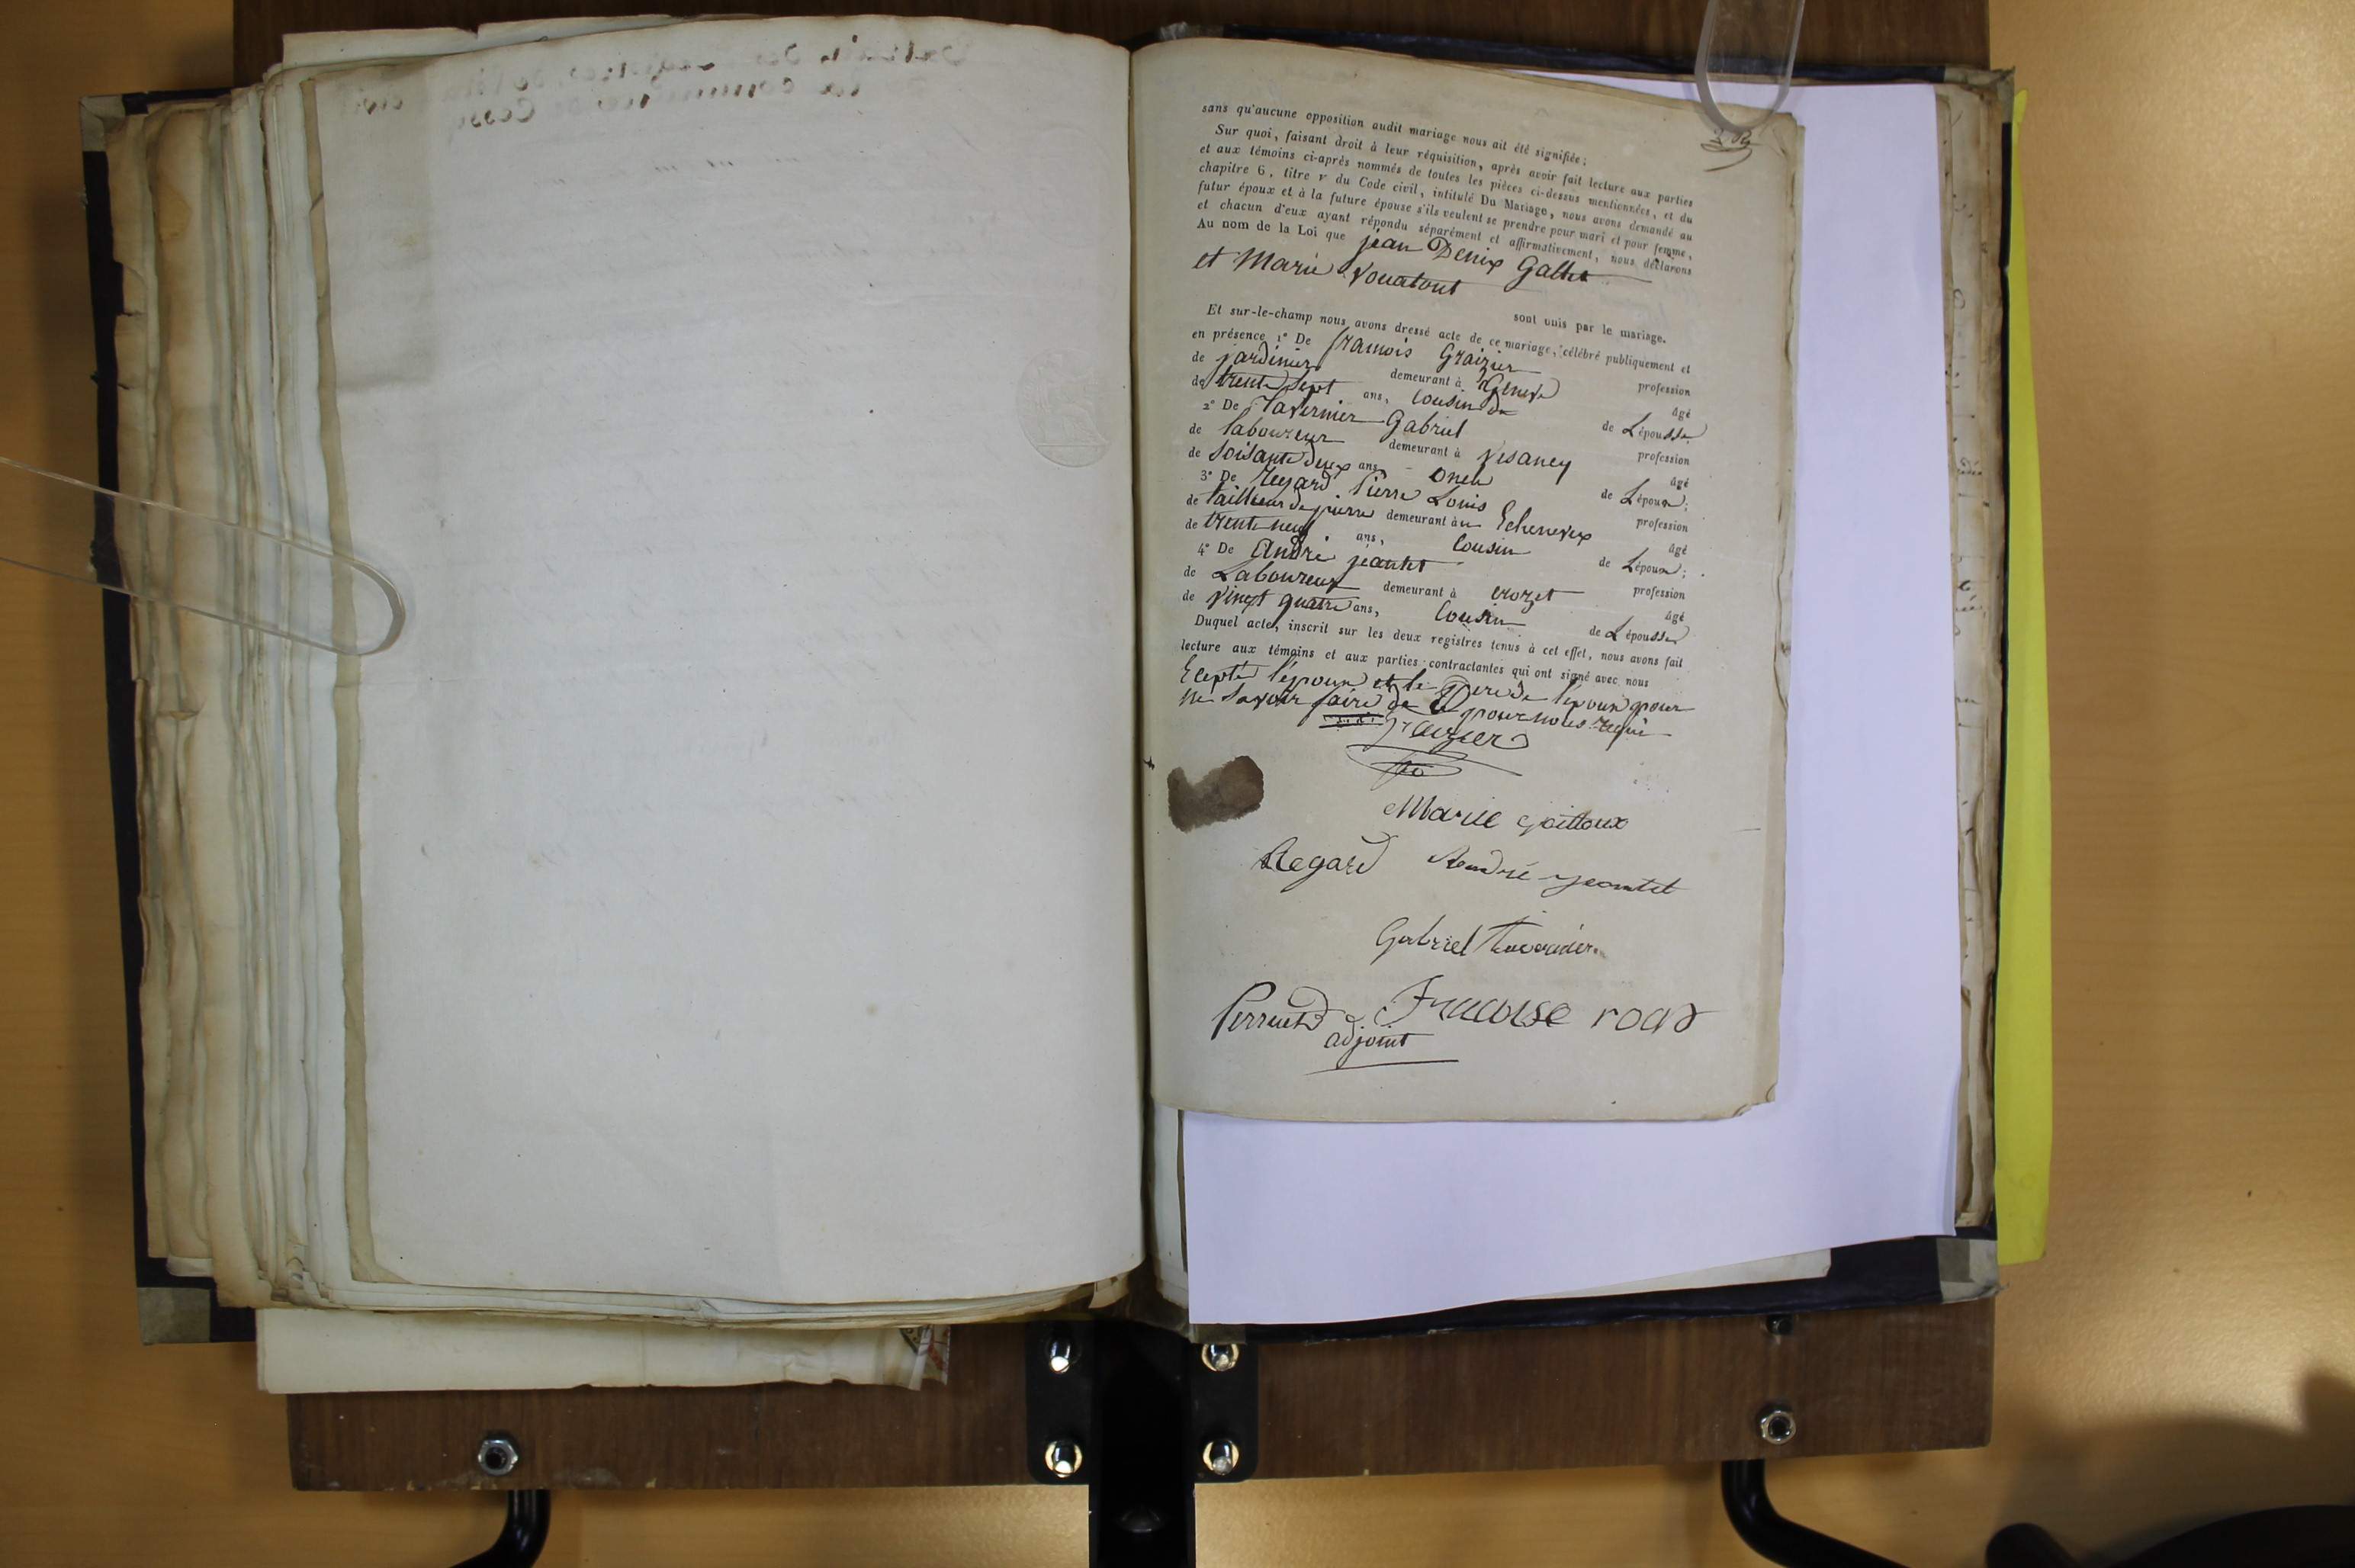 sans qu'aucune opposition audit mariage nous ait été signifiée;
Sur quoi, faisant droit à leur réquisition, après avoir fait lecture aux parties
et aux témoins ci-après nommés de toutes les pièces ci-dessus mentionnées, et du
chapitre 6, titre v du Code civil, intitulé Du Mariage, nous avons demandé au
futur époux et à la future épouse s'ils veulent se prendre pour mari et pour femme,
et chacun d'eux ayant répondu séparément et affirmativement, nous déclarons
Au nom de la Loi que jean Denix
et Marie Vouatout
sont unis par le mariage.
Et sur-le-champ nous avons dressé acte de ce mariage, célébré publiquement et
en présence 1° De framois Graizier profession
de jardinier demeurant à Geneve âgé
de trente Sept ans, Cousin de de Lépousse
2° De Tavernier Gabriel profession
de laboureur demeurant à Vesancy âgé
de Soisante deux ans, oncle de Lépoux;
3° De Regard Pierre Louis profession
de tailleur de pierre demeurant à Echenevex âgé
de trente neuf ans, Cousin de Lépoux;
4° De André jeantet profession
de Laboureur demeurant à crozet âgé
de Vingt quatre ans, Cousin de Lépousse
Duquel acte, inscrit sur les deux registres tenus à cet effet, nous avons fait
lecture aux témoins et aux parties contractantes qui ont signé avec nous
Ecepté l'époux et le Pere de l'époux pour
ne Savoir faire de pour nous requi
Marie
Regard André jeantet
Gabriel Tavernier
Perraud Francoise
adjoint